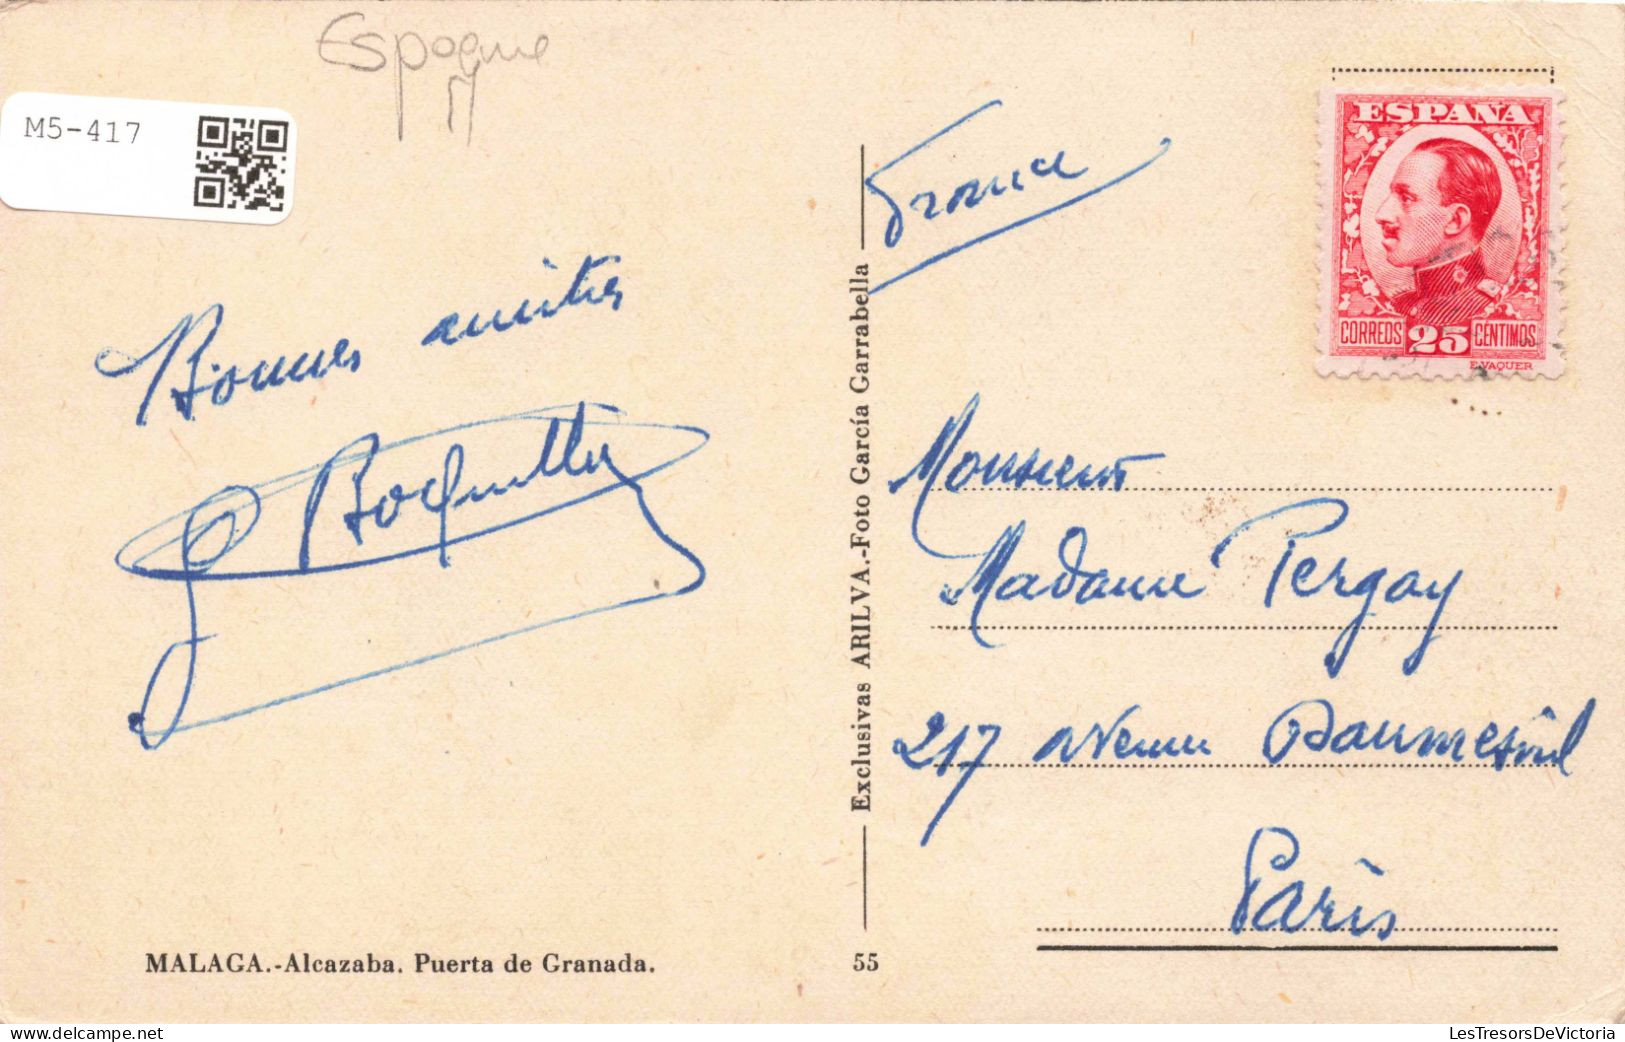 Espagne
M5-417
France
ESPAÑA
CORREOS 25 CÉNTIMOS
E.VAQUER
Bonnes amitiés
Monsieur
Madame Pergay
217 avenue Daumesnil
Paris
Exclusivas ARILVA.-Foto García Garrabella
MALAGA.-Alcazaba. Puerta de Granada.
55
LesTresorsDeVictoria
delcampe.net